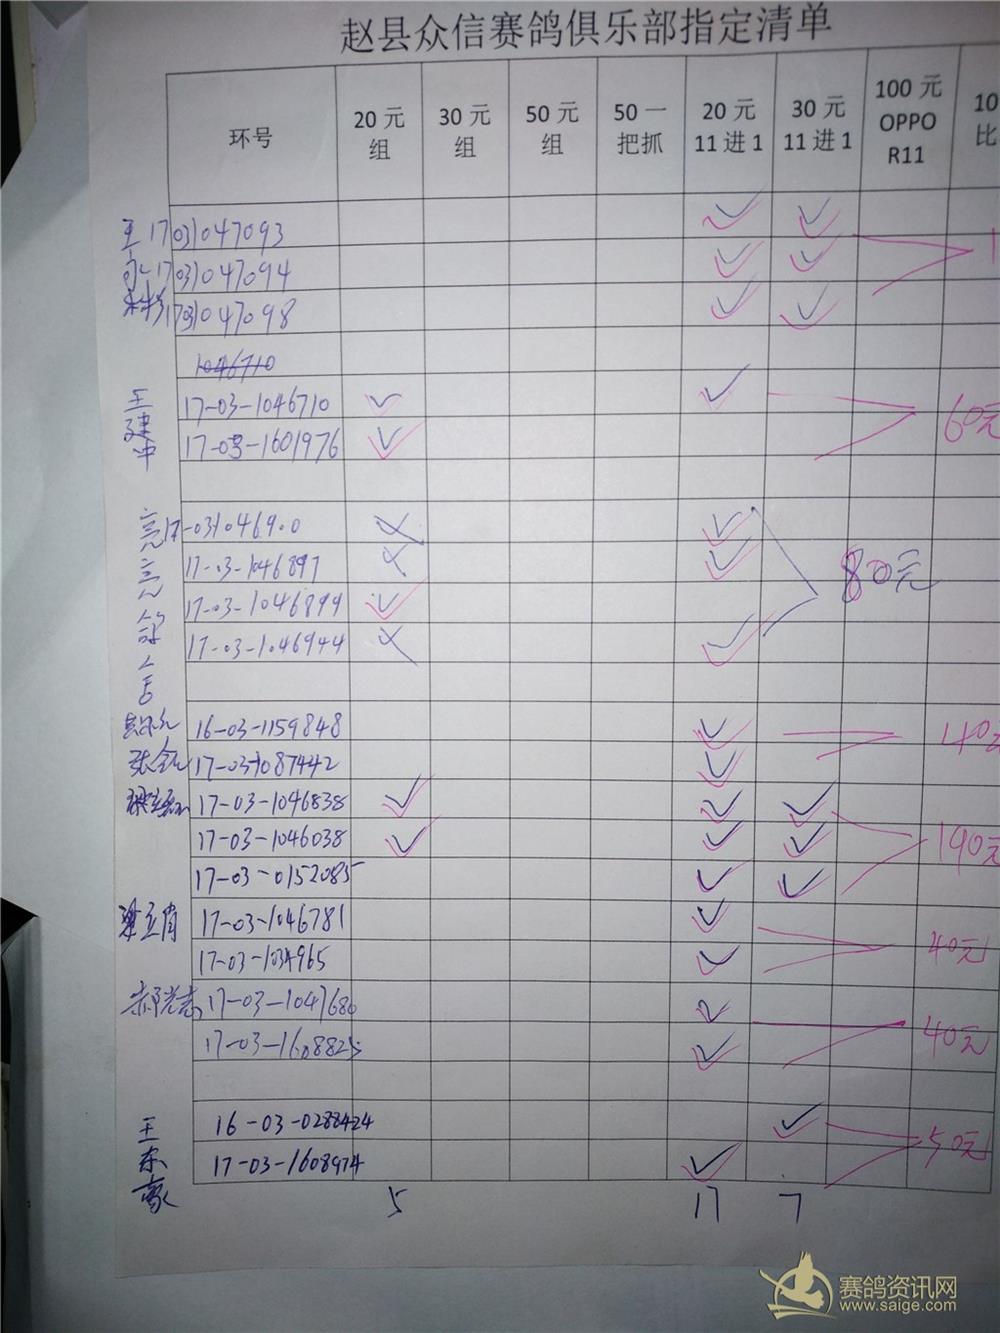 赵县众信赛鸽俱乐部指定清单
环号 20元组 30元组 50元组 50一把抓 20元11进1 30元11进1 100元OPPO R11 10 比
王 17031047093 ✓ ✓
17031047094 ✓ ✓
17031047098 ✓ ✓
1046710
王建中 17-03-1046710 ✓ ✓ 60元
17-03-1601976 ✓
17-031046900 × ✓
17-03-1046897 × ✓ 80元
17-03-1046899 ✓
17-03-1046944 × ✓
16-03-1159848 ✓ 40元
17-03-1087442 ✓
17-03-1046838 ✓ ✓ ✓
17-03-1046038 ✓ ✓ ✓ 190元
17-03-0152085 ✓ ✓
梁立肖 17-03-1046781 ✓
17-03-1034965 ✓ 40元
17-03-1047680 ✓
17-03-1608825 ✓ 40元
王东豪 16-03-0288424 ✓ 50元
17-03-1608974 ✓
5 17 7
赛鸽资讯网
www.saige.com